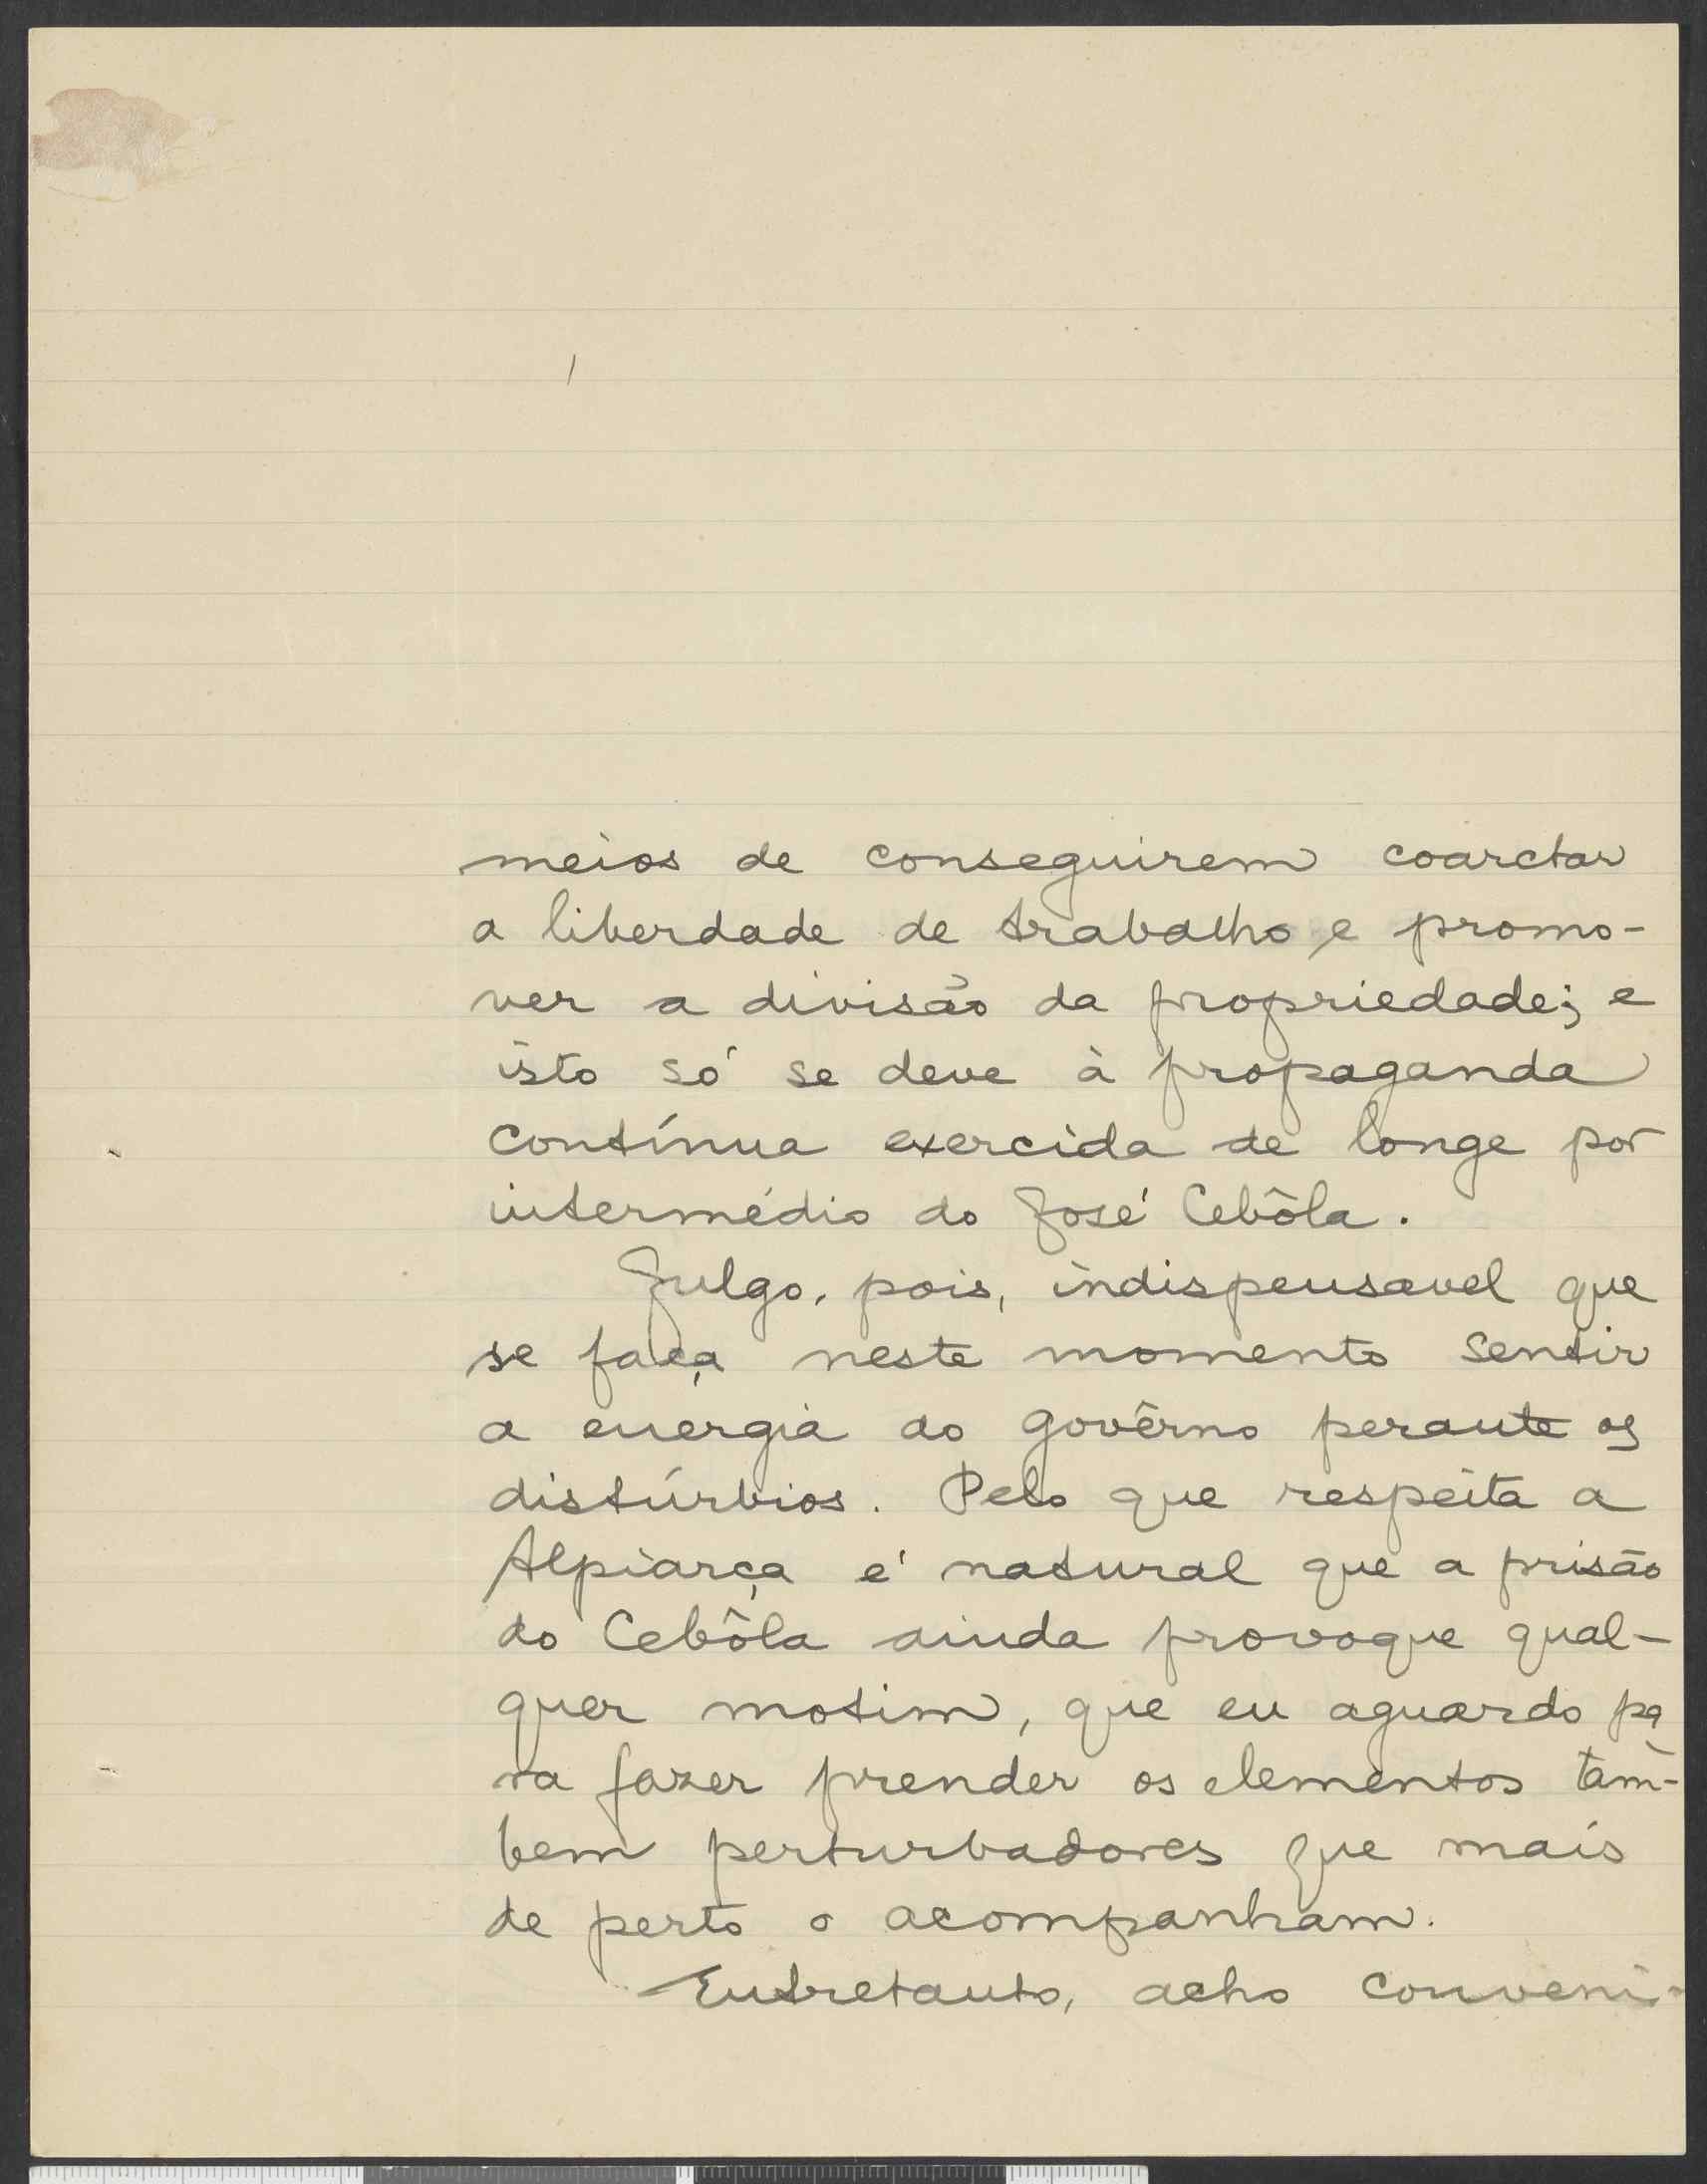 meios de conseguirem coarctar
a liberdade de trabalho e promo-
ver a divisão da propriedade; e
isto só se deve à propaganda
contínua exercida de longe por
intermédio do José Cebôla.
Julgo, pois, indispensavel que
se faça neste momento sentir
a energia do govêrno perante os
distúrbios. Pelo que respeita a
Alpiarça é natural que a prisão
do Cebôla ainda provoque qual-
quer motim, que eu aguardo pa
ra fazer prender os elementos tàm-
bem perturbadores que mais
de perto o acompanham.
Entretanto, acho conveni-